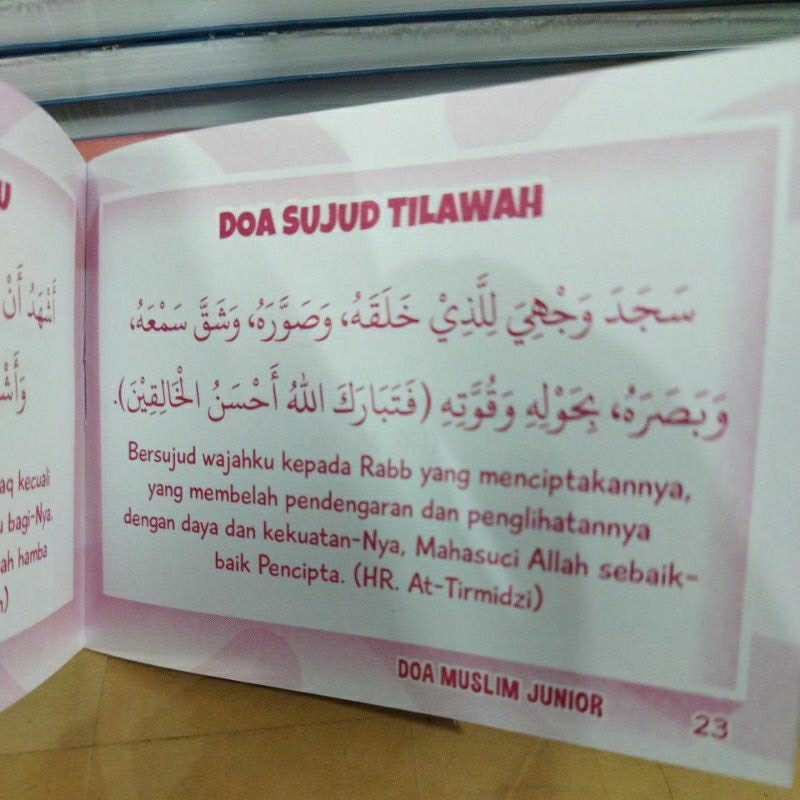 U
أَشْهَدُ أَنْ
وَأَشْ
aq kecuali
u bagi-Nya.
ah hamba
DOA SUJUD TILAWAH
سَجَدَ وَجْهِيَ لِلَّذِيْ خَلَقَهُ، وَصَوَّرَهُ، وَشَقَّ سَمْعَهُ،
وَبَصَرَهُ، بِحَوْلِهِ وَقُوَّتِهِ (فَتَبَارَكَ اللهُ أَحْسَنُ الْخَالِقِيْنَ).
Bersujud wajahku kepada Rabb yang menciptakannya,
yang membelah pendengaran dan penglihatannya
dengan daya dan kekuatan-Nya, Mahasuci Allah sebaik-
baik Pencipta. (HR. At-Tirmidzi)
DOA MUSLIM JUNIOR
23